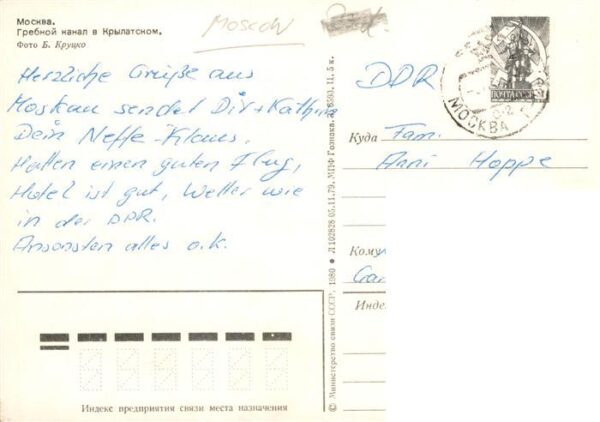 Москва.
Гребной канал в Крылатском.
Фото Б. Круцко
Moscow
Herzliche Grüße aus
Moskau sendet Dir + Kathrin
Dein Neffe Klaus.
Hatten einen guten Flug,
Hotel ist gut, Wetter wie
in der DDR.
Ansonsten alles o.k.
Индекс предприятия связи места назначения
© Министерство связи СССР, 1980 ● Л 102828 05.11.79. МПФ Гознака.
11, 5 к.
МОСКВА
DDR
Куда Fam.
Anni Hoppe
Кому
Инде